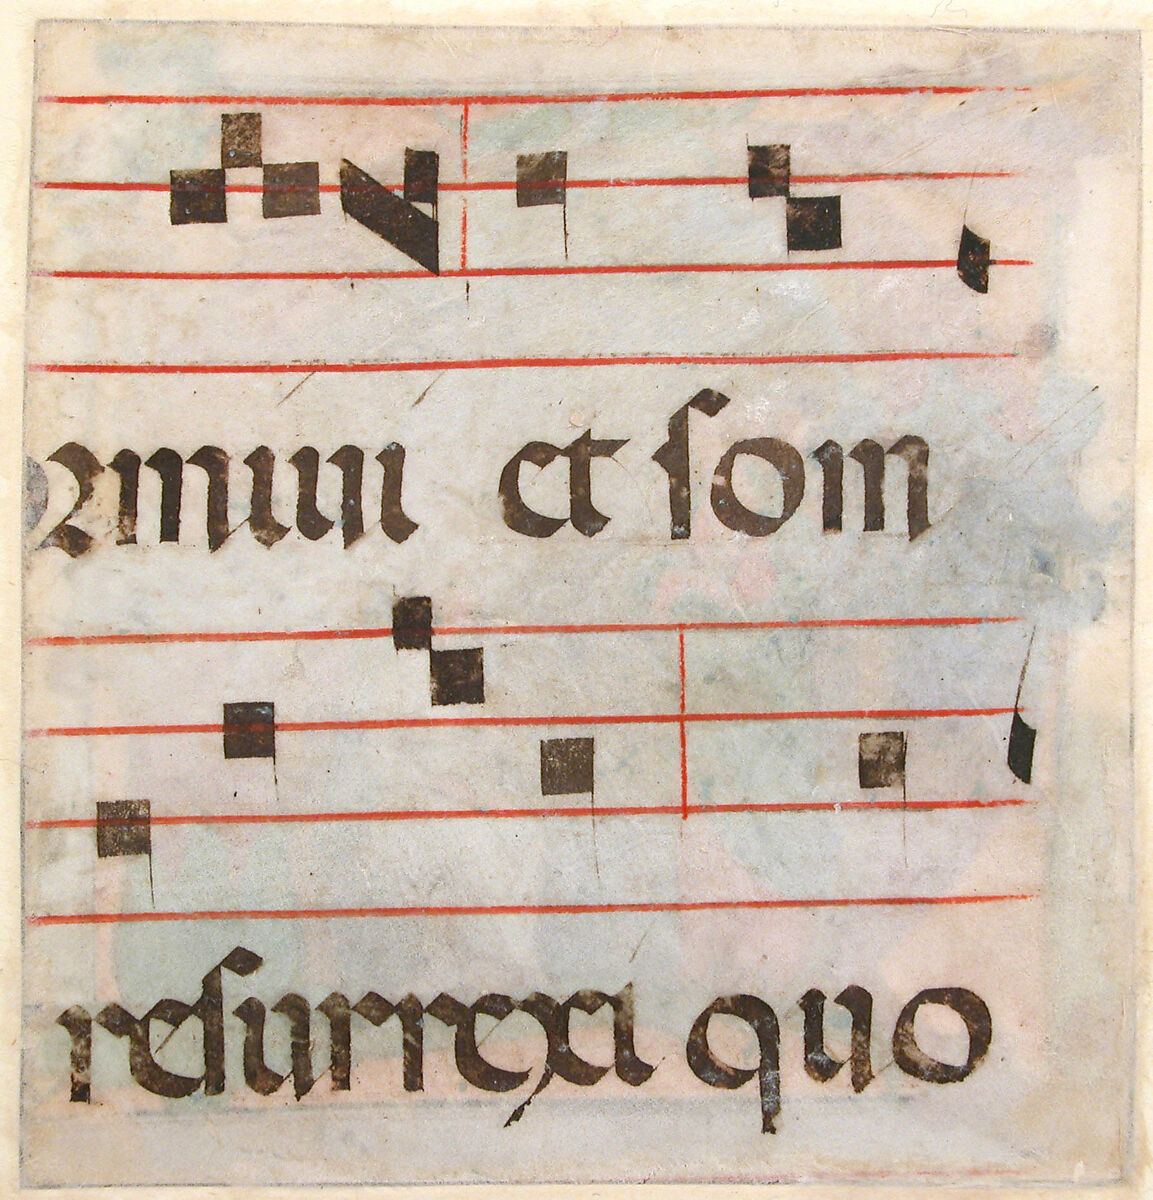 ormiui et som
resurrexi quo